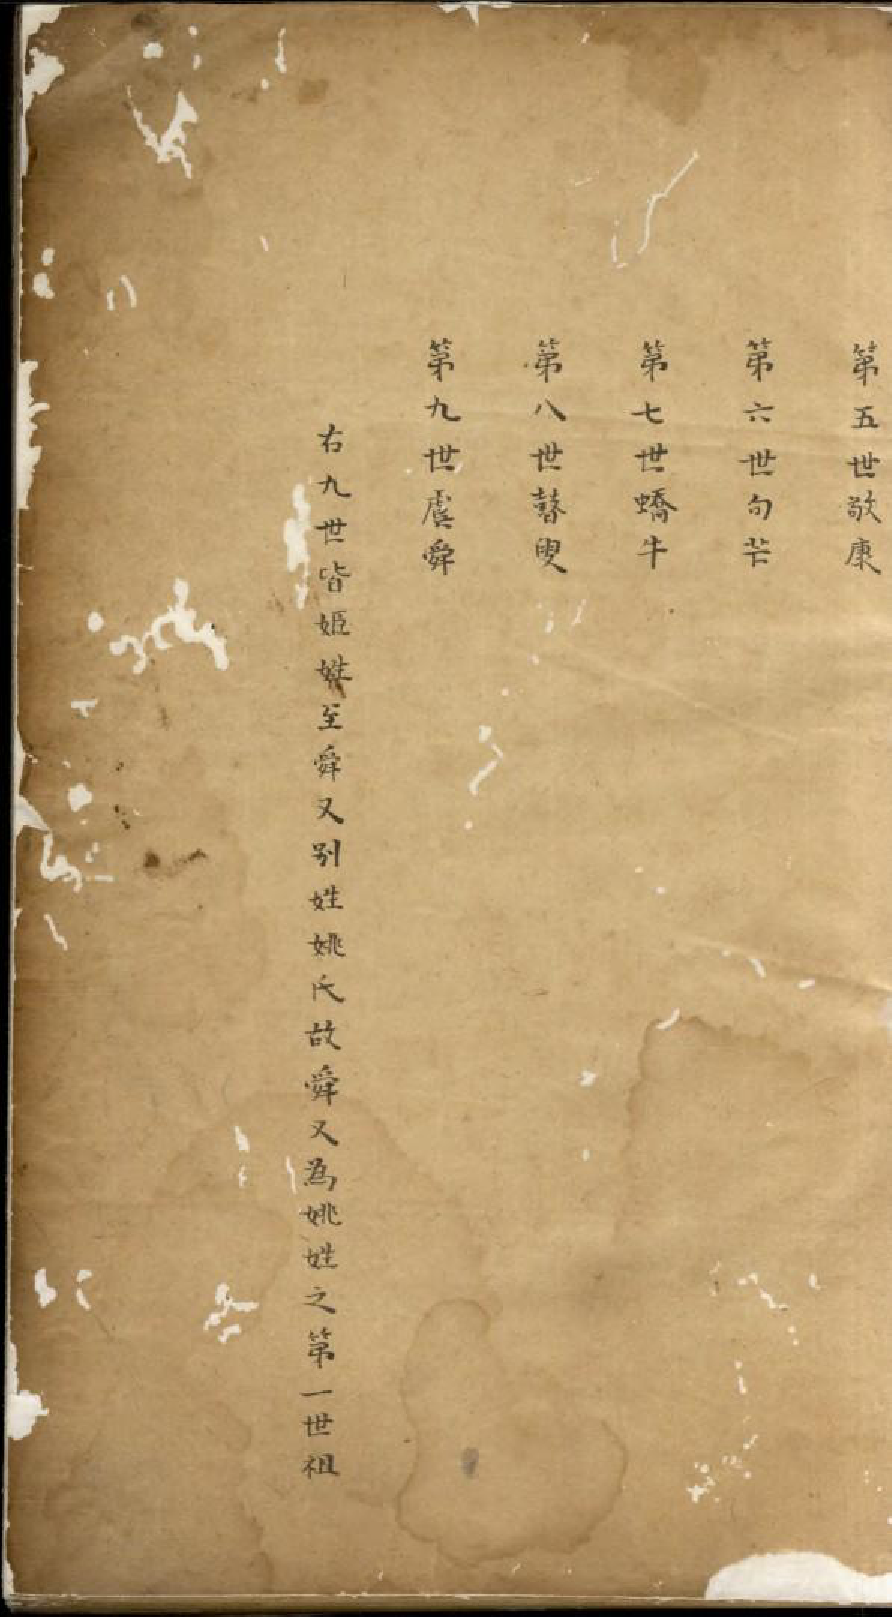 第五世敬康
第六世句芒
第七世蟜牛
第八世瞽叟
第九世虞舜
右九世皆姬姓至舜又别姓姚氏故舜又為姚姓之第一世祖